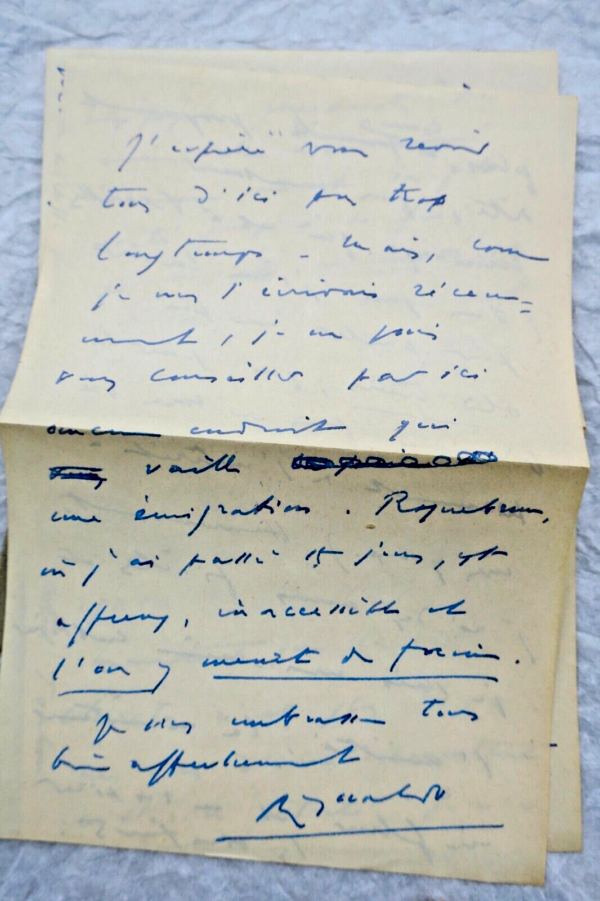 J'espère vous revoir
tous d'ici pas trop
longtemps – Mais, comme
je vous l'écrivais récem=
ment, je ne puis
vous conseiller par ici
aucun endroit qui
vaille
une émigration. Roquebrune,
où j'ai passé 15 jours, est
affreux, inaccessible et
l'on y meurt de faim.
Je vous embrasse tous
bien affectueusement
Reynaldo